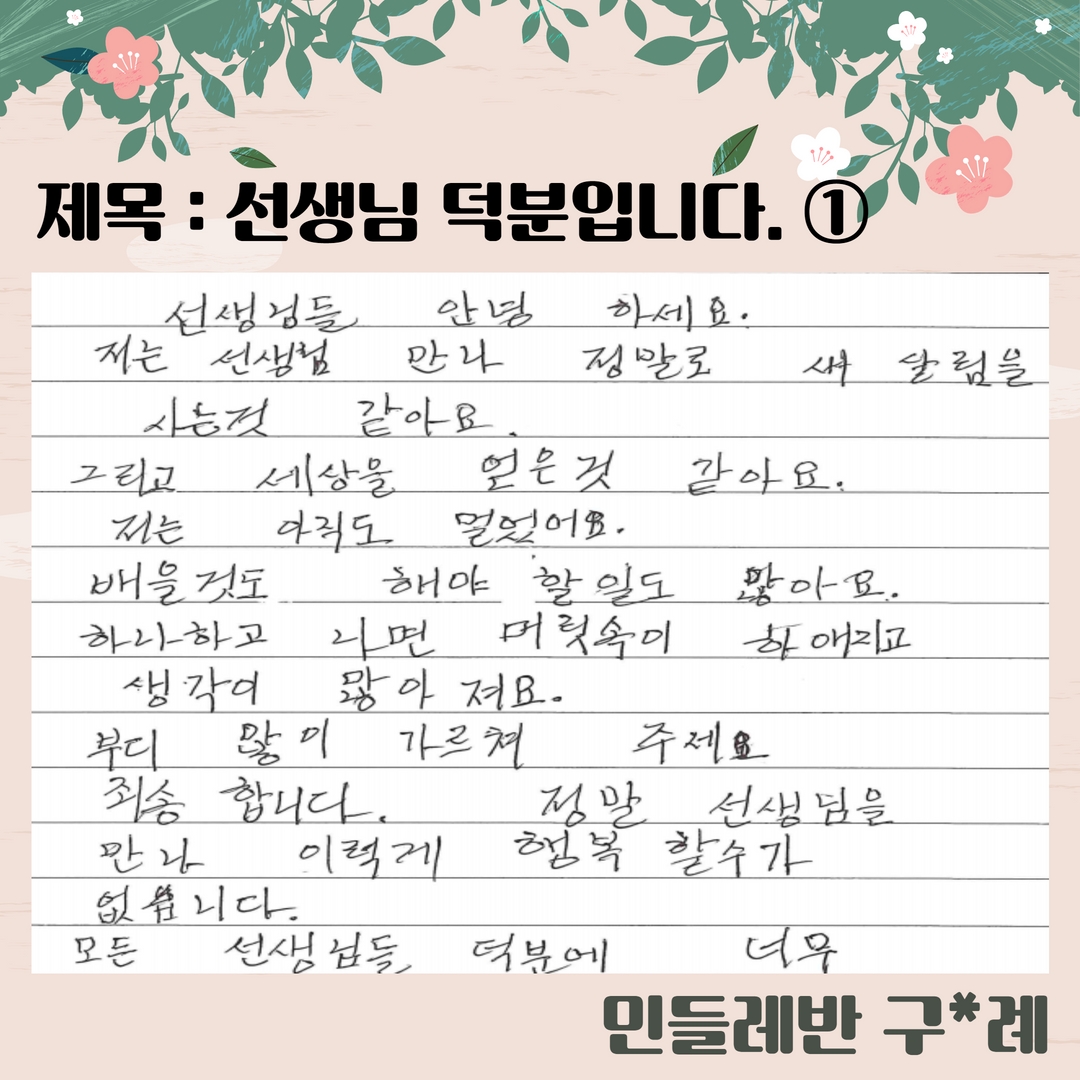 제목 : 선생님 덕분입니다. ①
선생님들 안녕 하세요.
저는 선생님 만나 정말로 새 살림을
사는것 같아요.
그리고 세상을 얻은것 같아요.
저는 아직도 멀었어요.
배울것도 해야 할일도 많아요.
하나하고 나면 머릿속이 하애지고
생각이 많아 져요.
부디 많이 가르쳐 주세요
죄송 합니다. 정말 선생님을
만나 이럭게 행복 할수가
없습니다.
모든 선생님들 덕분에 너무
민들레반 구*례